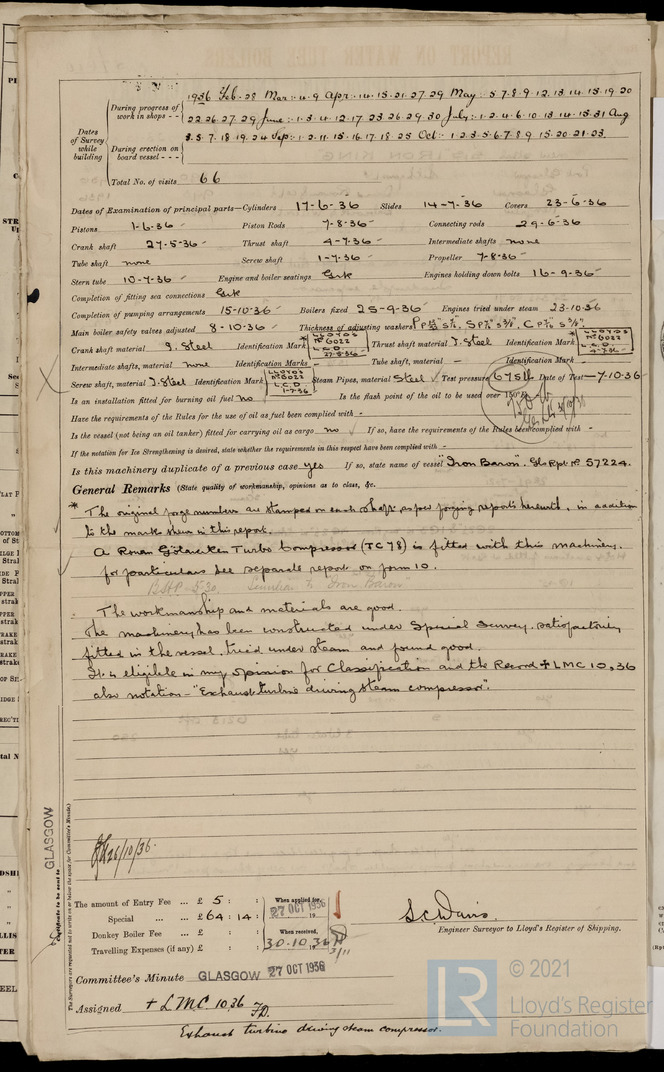 1936 Feb. 28 Mar: 4. 9 Apr: 14. 15. 21. 27. 29 May: 5. 7. 8. 9. 12. 13. 14. 15. 19. 20
Dates of Survey while building
During progress of work in shops - -
22. 26. 27. 29 June: 1. 3. 4. 12. 17. 23. 26. 29. 30 July: 1. 2. 4. 6. 10. 13. 14. 15. 31 Aug
3. 5. 7. 18. 19. 24 Sep: 1. 2. 11. 15. 16. 17. 18. 25 Oct: 1. 2. 3. 5. 6. 7. 8. 9. 15. 20. 21. 23.
During erection on board vessel - - -
Total No. of visits 66
Dates of Examination of principal parts—Cylinders 17-6-36 Slides 14-7-36 Covers 23-6-36
Pistons 1-6-36 Piston Rods 7-8-36 Connecting rods 29-6-36
Crank shaft 27-5-36 Thrust shaft 4-7-36 Intermediate shafts none
Tube shaft none Screw shaft 1-7-36 Propeller 7-8-36
Stern tube 10-7-36 Engine and boiler seatings Grk Engines holding down bolts 16-9-36
Completion of fitting sea connections Grk
Completion of pumping arrangements 15-10-36 Boilers fixed 25-9-36 Engines tried under steam 23-10-36
Main boiler safety valves adjusted 8-10-36 Thickness of adjusting washers
Crank shaft material I. Steel Identification Mark LLOYDS No 6022 L.C.D. 27-5-36 Thrust shaft material I. Steel Identification Mark LLOYDS No 6022 L.C.D. 4-7-36
Intermediate shafts, material none Identification Marks - Tube shaft, material - Identification Mark -
Screw shaft, material I. Steel Identification Mark LLOYDS No 6022 L.C.D. 1-7-36 Steam Pipes, material Steel Test pressure 675 lb Date of Test 7-10-36
Is an installation fitted for burning oil fuel no Is the flash point of the oil to be used over 150°F.
Have the requirements of the Rules for the use of oil as fuel been complied with -
Is the vessel (not being an oil tanker) fitted for carrying oil as cargo no If so, have the requirements of the Rules been complied with -
If the notation for Ice Strengthening is desired, state whether the requirements in this respect have been complied with -
Is this machinery duplicate of a previous case yes If so, state name of vessel "Iron Baron". Gls Rpt No 57224.
General Remarks (State quality of workmanship, opinions as to class, &c.
* The original forge numbers are stamped on each shaft as per forging reports herewith, in addition
to the marks shewn in this report.
A Rowan Götaverken Turbo Compressor (TC 78) is fitted with this machinery.
for particulars see separate report on form 10.
BHP 530. Similar to "Iron Baron"
The workmanship and materials are good.
The machinery has been constructed under Special Survey, satisfactorily
fitted in the vessel, tried under steam and found good.
It is eligible in my opinion for Classification and the Record + LMC 10,36
also notation - "Exhaust turbine driving steam compressor".
26/10/36.
GLASGOW
Certificate to be sent to
The Surveyors are requested not to write on or below the space for Committee's Minute.
The amount of Entry Fee ... £ 5 : : When applied for,
Special ... ... £ 64 : 14 : 27 OCT 1936
Donkey Boiler Fee ... £ : : When received,
Travelling Expenses (if any) £ : : 30.10.36
3/11
S. C. Davis.
Engineer Surveyor to Lloyd's Register of Shipping.
Committee's Minute GLASGOW 27 OCT 1936
Assigned + LMC. 10,36 F.D.
Exhaust turbine driving steam compressor.
LR
© 2021
Lloyd's Register
Foundation